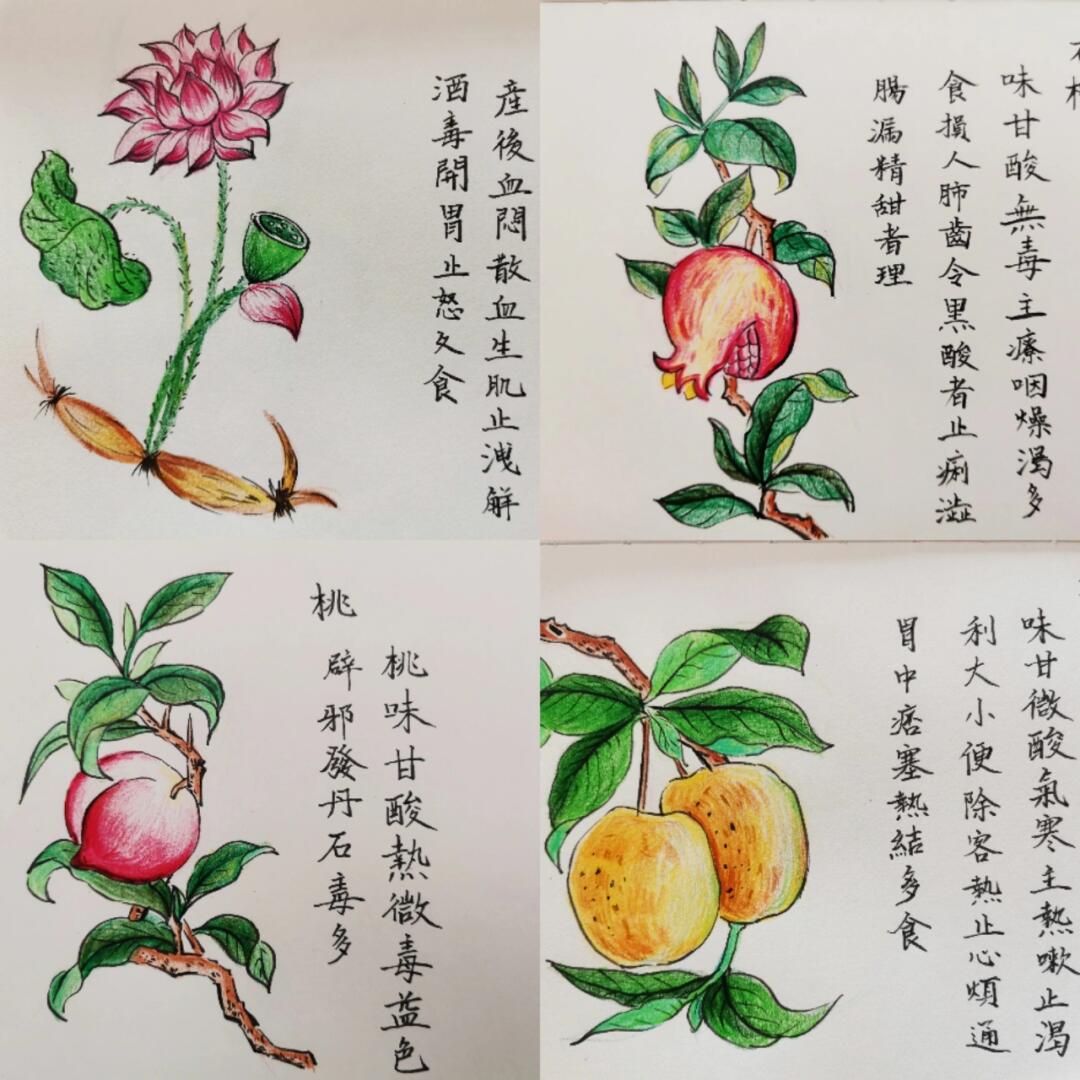 産後血悶散血生肌止洩解
酒毒開胃止怒久食
味甘酸無毒主療咽燥渴多
食損人肺齒令黑酸者止痢澁
腸漏精甜者理
桃
桃味甘酸熱微毒益色
辟邪發丹石毒多
味甘微酸氣寒主熱嗽止渴
利大小便除客熱止心煩通
胃中痞塞熱結多食